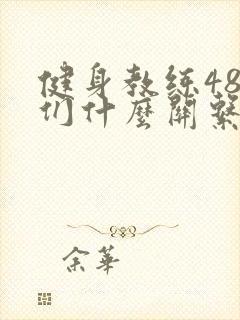 健身教练48
们什麼關繫
余華